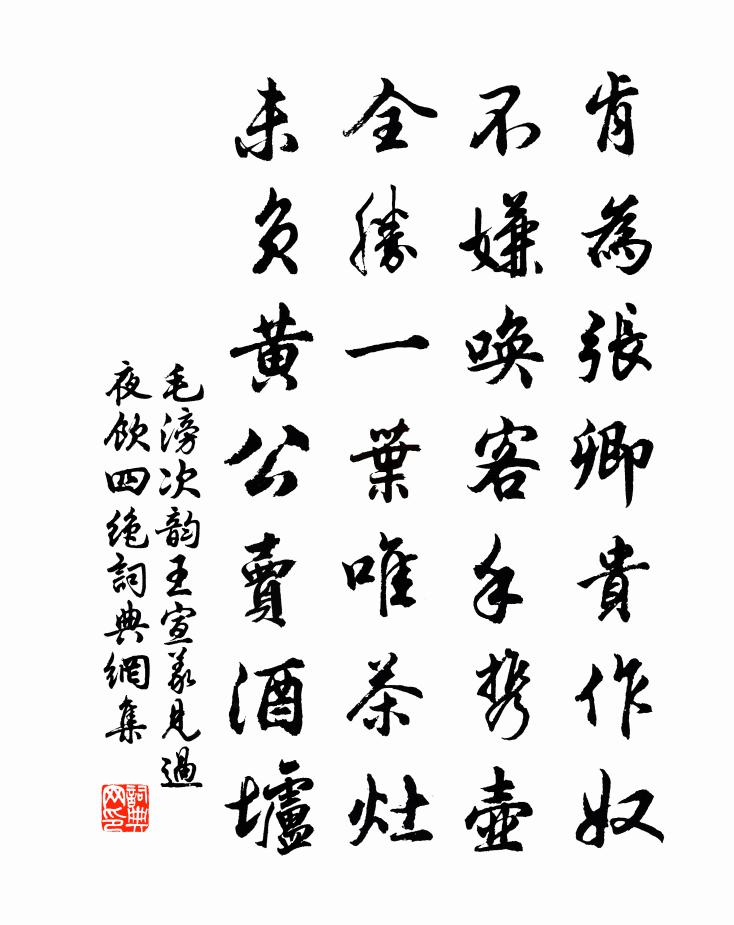 肯為張卿貴作奴
不嫌喚客手携壺
全勝一葉唯茶灶
未負黃公賣酒壚
毛滂次韵王宣義見過
夜飲四絶詞典網集
詞典网印